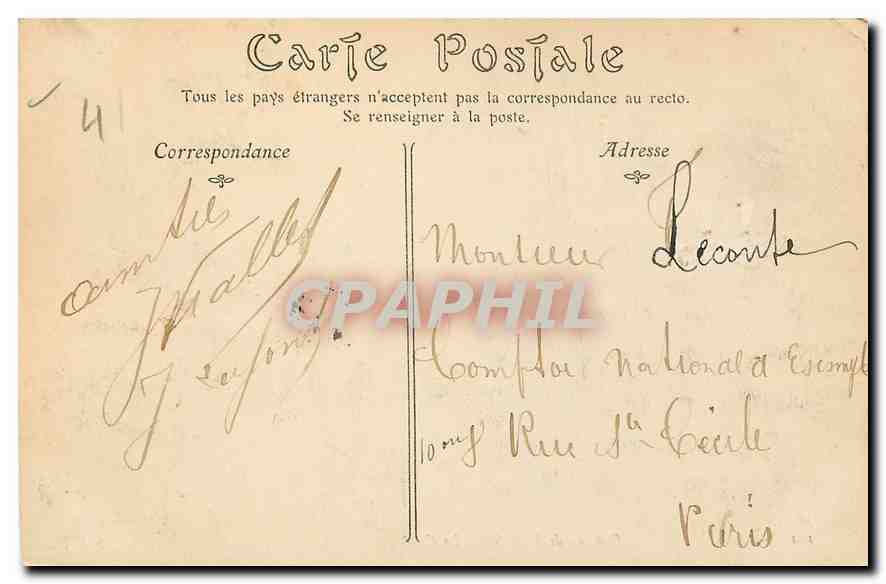 Carte Postale
Tous les pays étrangers n'acceptent pas la correspondance au recto.
Se renseigner à la poste.
41
Correspondance
Adresse
amitiés
Monsieur Leconte
CPAPHIL
Comptoir National d'Escompte
Rue Ste Cécile
Paris